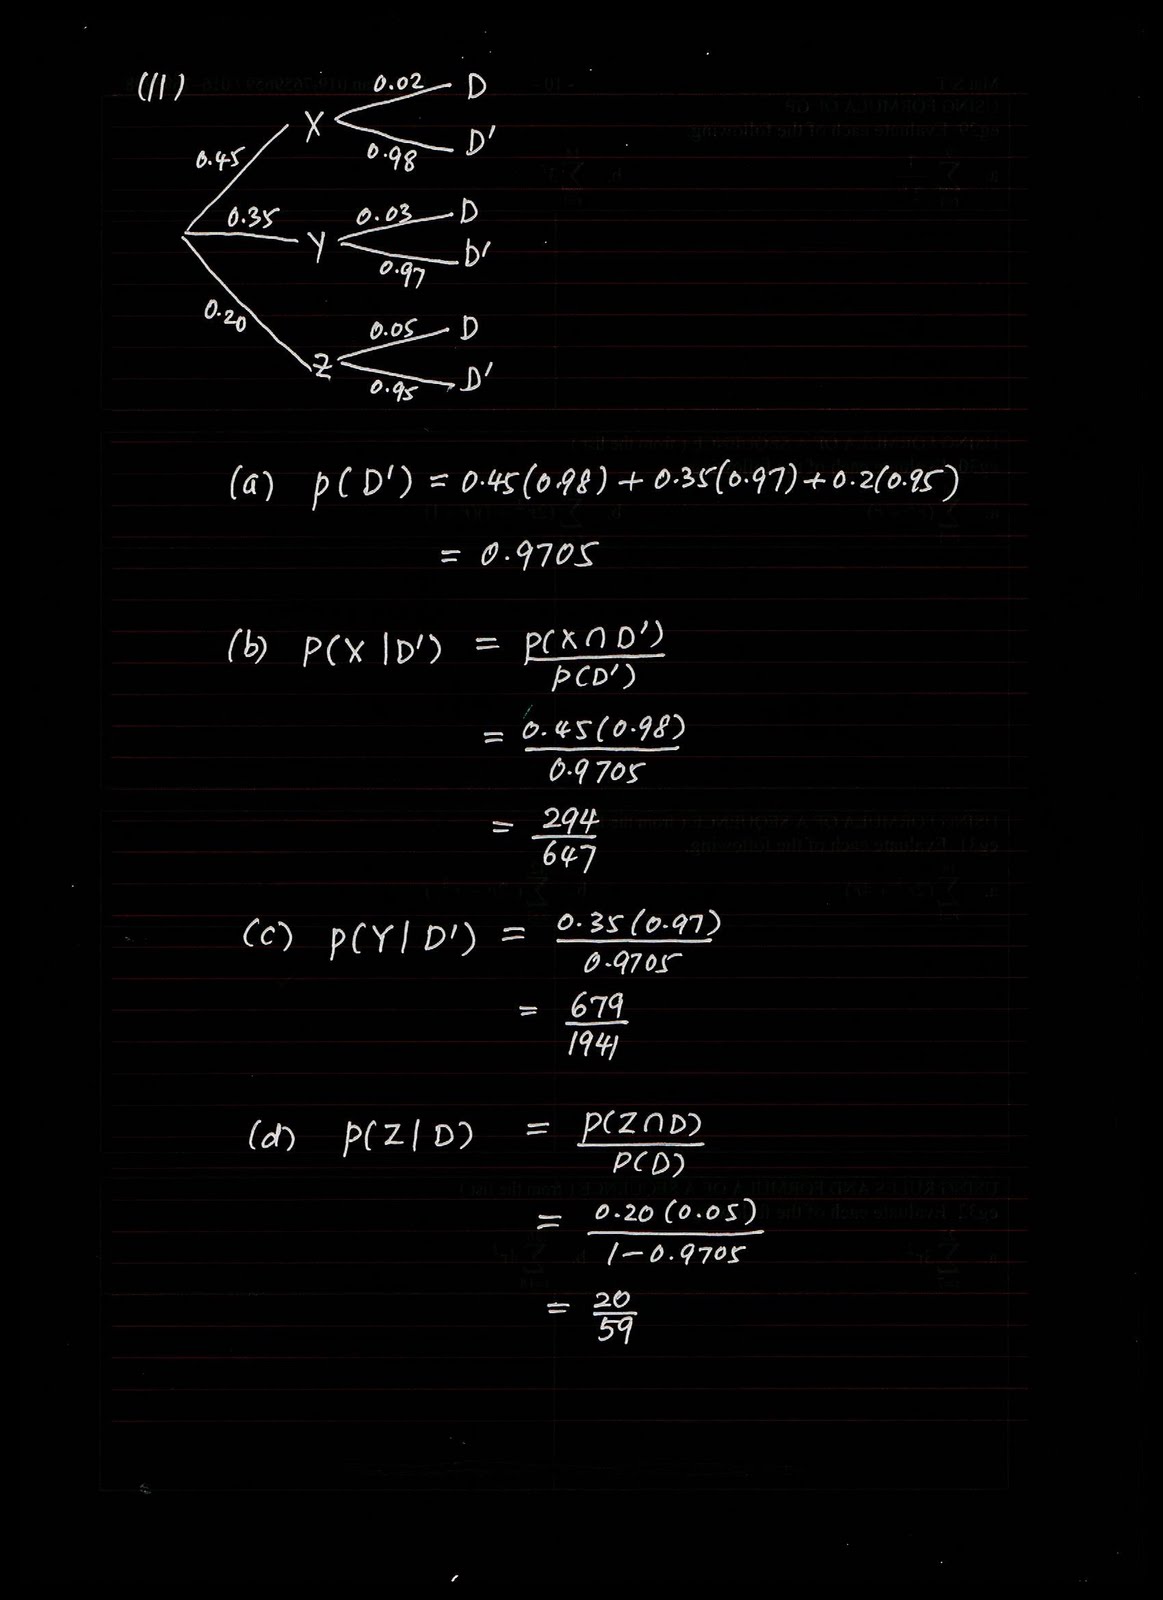 (11)
0.02 D
X
0.45 0.98 D'
0.35 0.03 D
Y
0.97 D'
0.20
0.05 D
Z
0.95 D'
(a) P(D') = 0.45(0.98) + 0.35(0.97) + 0.2(0.95)
= 0.9705
(b) P(X|D') = P(X∩D')
P(D')
= 0.45(0.98)
0.9705
= 294
647
(c) P(Y|D') = 0.35(0.97)
0.9705
= 679
1941
(d) P(Z|D) = P(Z∩D)
P(D)
= 0.20(0.05)
1-0.9705
= 20
59